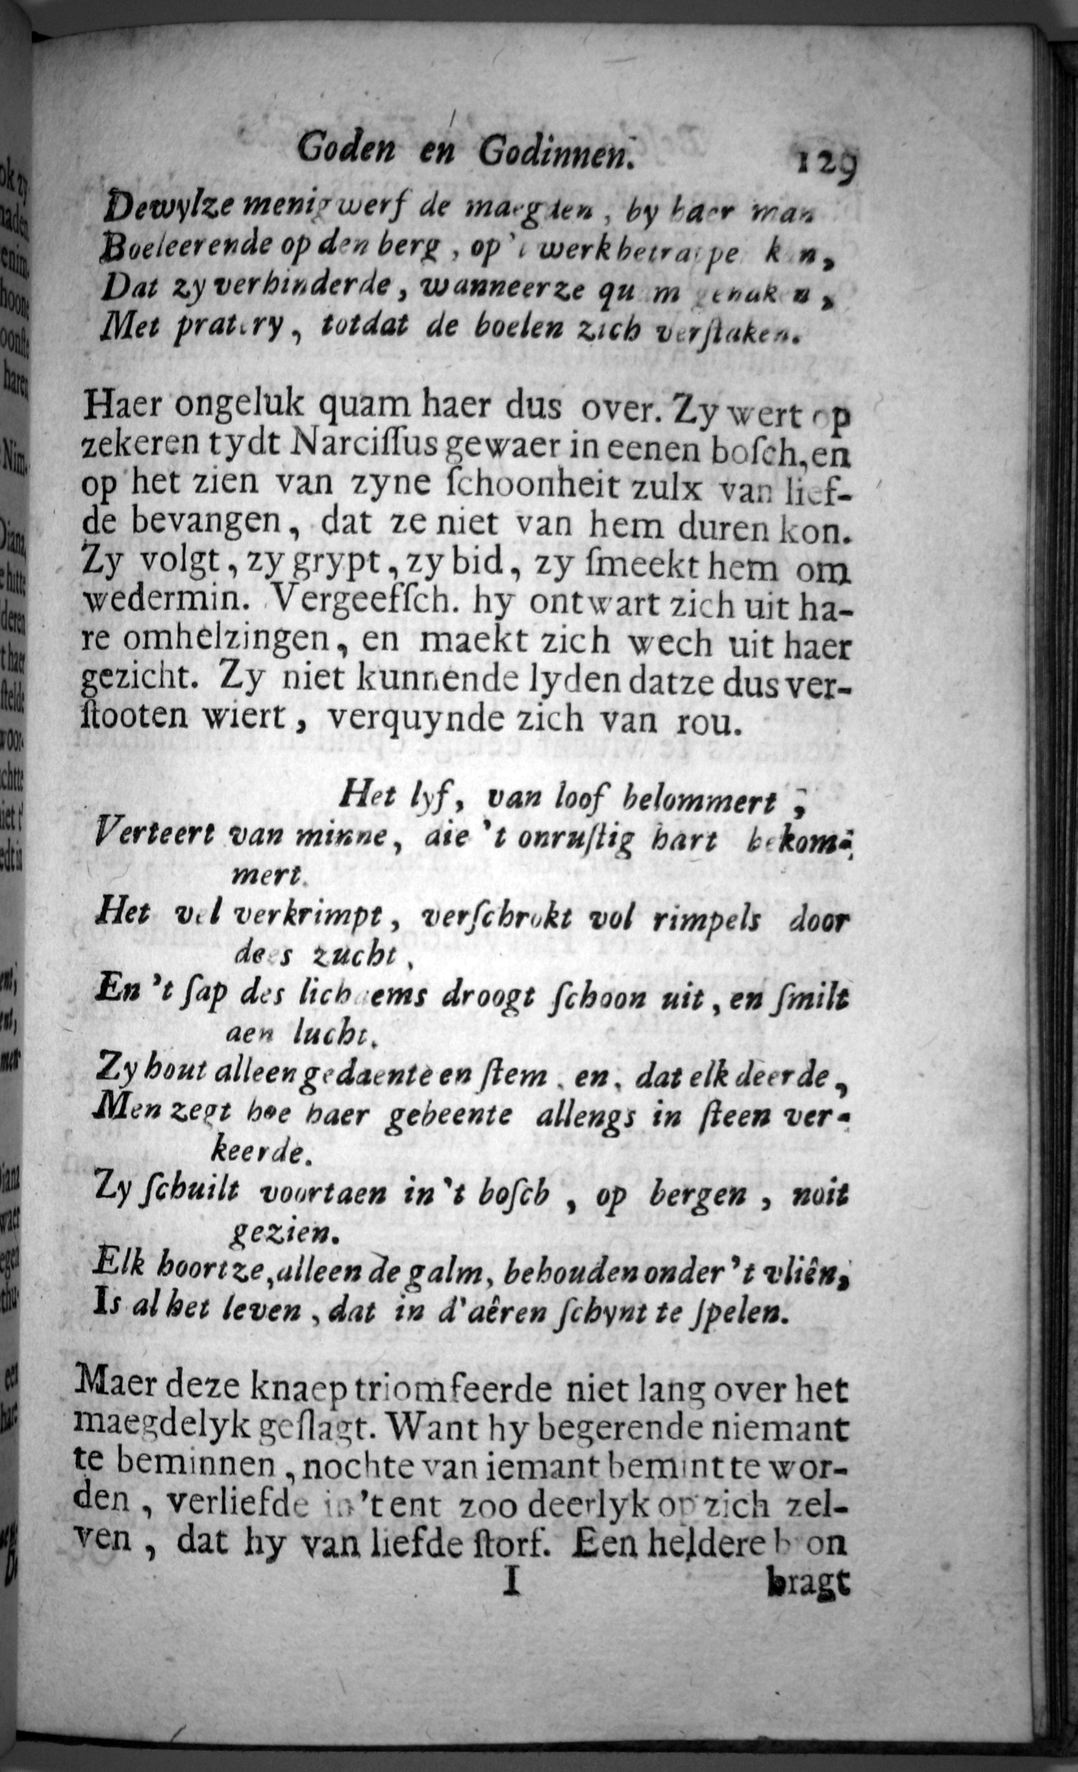 Goden en Godinnen. 129
Dewylze menigwerf de maegden, by haer man
Boeleerende op den berg, op 't werk betrappe kon,
Dat zy verhinderde, wanneerze quam genaken,
Met pratery, totdat de boelen zich verſtaken.
Haer ongeluk quam haer dus over. Zy wert op
zekeren tydt Narciſſus gewaer in eenen boſch, en
op het zien van zyne ſchoonheit zulx van lief-
de bevangen, dat ze niet van hem duren kon.
Zy volgt, zy grypt, zy bid, zy ſmeekt hem om
wedermin. Vergeefſch. hy ontwart zich uit ha-
re omhelzingen, en maekt zich wech uit haer
gezicht. Zy niet kunnende lyden datze dus ver-
ſtooten wiert, verquynde zich van rou.
Het lyf, van loof belommert,
Verteert van minne, die 't onruſtig hart bekom-
mert.
Het vel verkrimpt, verſchrokt vol rimpels door
dees zucht,
En 't ſap des lichaems droogt ſchoon uit, en ſmilt
aen lucht.
Zy hout alleen gedaente en ſtem. en, dat elk deerde,
Men zegt hoe haer gebeente allengs in ſteen ver-
keerde.
Zy ſchuilt voortaen in 't boſch, op bergen, noit
gezien.
Elk hoortze, alleen de galm, behouden onder 't vliên,
Is al het leven, dat in d'aêren ſchynt te ſpelen.
Maer deze knaep triomfeerde niet lang over het
maegdelyk geſlagt. Want hy begerende niemant
te beminnen, nochte van iemant bemint te wor-
den, verliefde in 't ent zoo deerlyk op zich zel-
ven, dat hy van liefde ſtorf. Een heldere bron
I bragt